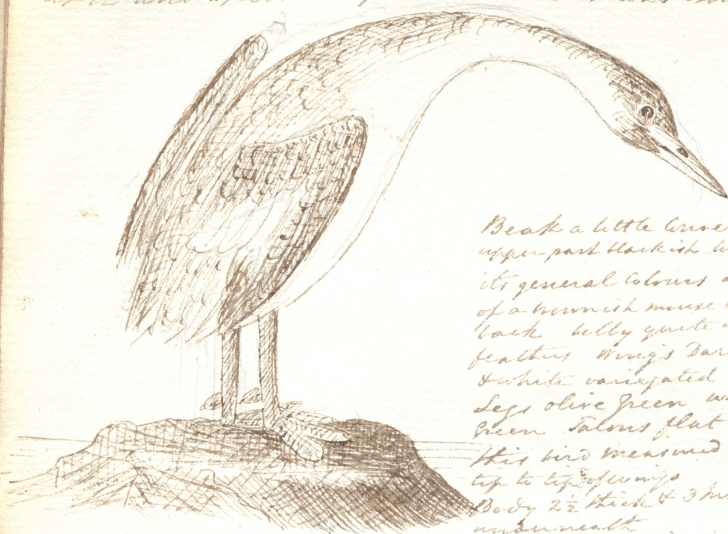 Beak a little
upper part blackish
its general Colours
of a brownish mouse
back belly quite
feathers Wings Dar
& white variegated
Legs olive Green
Green Talons flat
this bird measured
tip to tip of wings
Body 2½ thick & 3
underneath